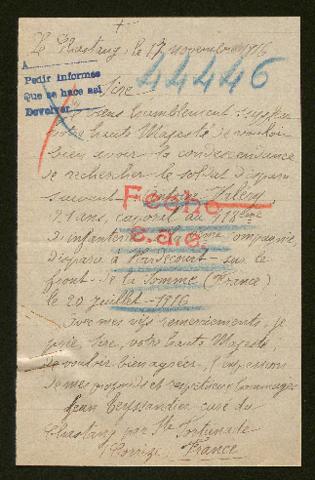 Le Chastang, le 17 novembre 1916
44446
A
Pedir informes
Que se hace asi
Devolver
Sire
Je viens humblement supplier
votre haute Majesté de vouloir
bien avoir la condescendance
de rechercher le soldat disparu
suivant
21 ans, caporal au 118ème
d'infanterie compagnie
disparu à Hardecourt - sur le
front de la Somme (France)
le 20 juillet - 1916
Fecho
e.a.e.
Avec mes vifs remerciements, je
prie, Sire, votre haute Majesté,
de vouloir bien agréer, l'expression
de mes profonds et respectueux hommages
Jean Teyssandier curé du
Chastang par Ste Fortunade
(Corrèze) France